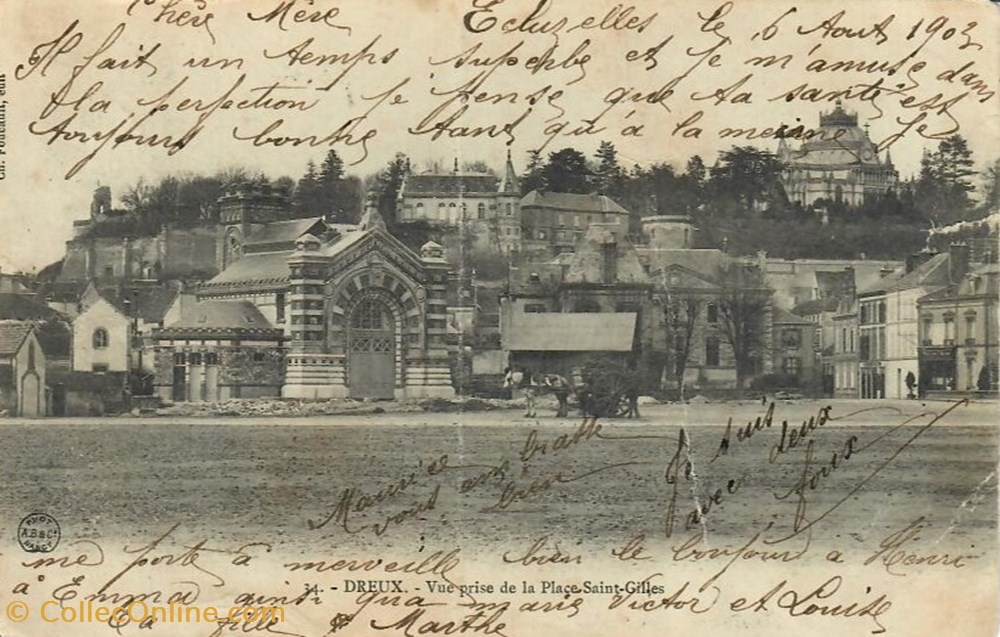 Chère Mère
Ecluzelles le 6 Aout 1903
Il fait un temps superbe et je m'amuse dans
la perfection je pense que ta santé est
toujours bonne tant qu'à la mienne je
Ch. Foucault, édit
Maurice vous embrasse
bien
Je suis
avec deux
foux
PHOT
A.B & Cie
NANCY
me porte à merveille bien le bonjour a Henri
34. - DREUX. - Vue prise de la Place Saint-Gilles
à Emma ainsi qu'a marie Victor et Louise
Ta fille Marthe
© CollecOnline.com